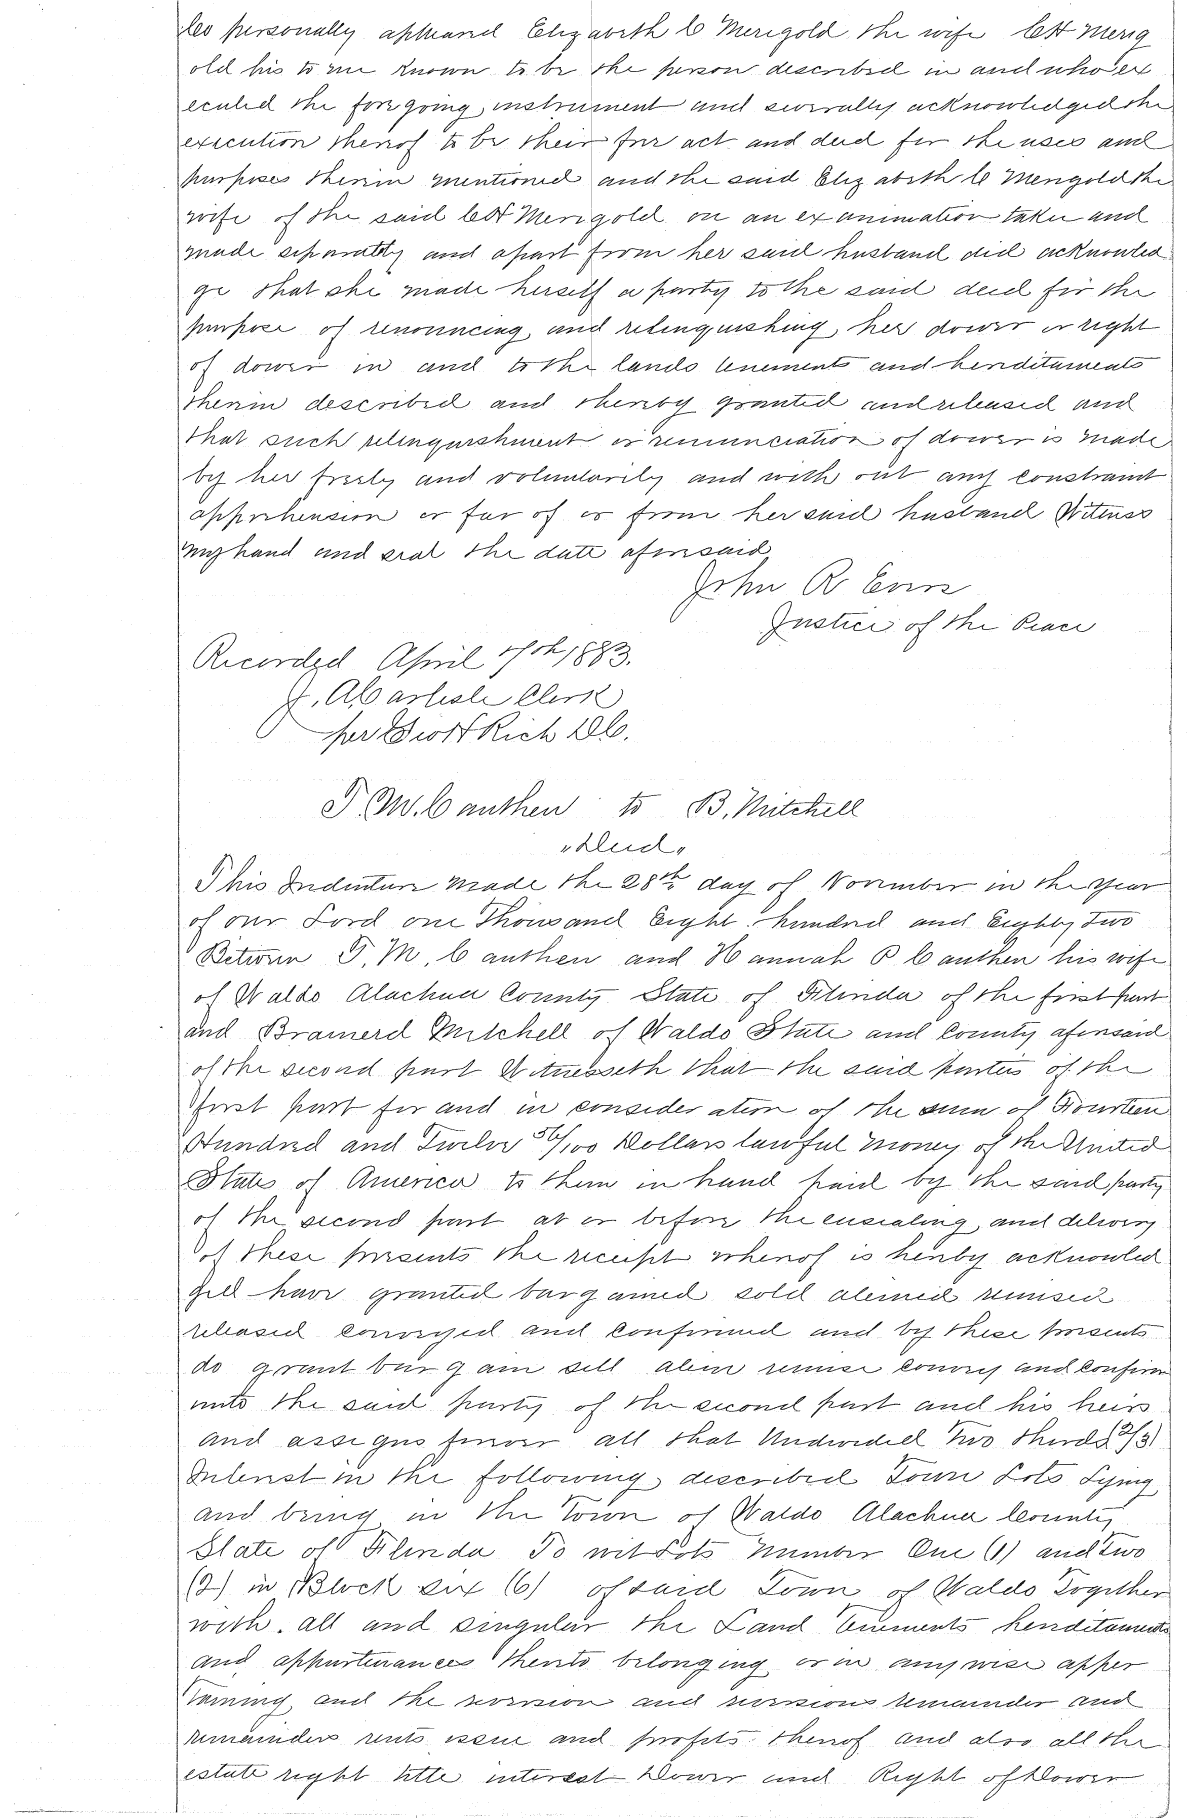 les personally appeared Elizabeth C Merigold the wife C H Merig
old his to me known to be the person described in and who ex
ecuted the foregoing instrument and severally acknowledged the
execution thereof to be their free act and deed for the uses and
purposes therein mentioned and the said Elizabeth C Merigold the
wife of the said C H Merigold on an examination taken and
made separately and apart from her said husband did acknowled
ge that she made herself a party to the said deed for the
purpose of renouncing and relinquishing her dower or right
of dower in and to the lands tenements and hereditaments
therein described and thereby granted and released and
that such relinquishment or renunciation of dower is made
by her freely and voluntarily and with out any constraint
apprehension or fear of or from her said husband Witness
my hand and seal the date aforesaid
John R
Justice of the Peace
Recorded April 7th 1883.
J. A. Carlisle Clerk
per Rich D.C.
T. M. Cauthen to B. Mitchell
"Deed"
This Indenture Made the 28th day of November in the year
of our Lord one Thousand Eight hundred and Eighty Two
Between T. M. Cauthen and Hannah P Cauthen his wife
of Waldo Alachua County State of Florida of the first part
and Bramerd Mitchell of Waldo State and County aforesaid
of the second part Witnesseth that the said parties of the
first part for and in consideration of the sum of Fourteen
Hundred and Twelve 56/100 Dollars lawful money of the United
States of America to them in hand paid by the said party
of the second part at or before the ensealing and delivery
of these presents the receipt whereof is hereby acknowled
ged have granted bargained sold aliened remised
released conveyed and confirmed and by these presents
do grant bargain sell alien remise convey and confirm
unto the said party of the second part and his heirs
and assigns forever all that Undivided Two thirds (2/3)
Interest in the following described Town Lots Lying
and being in the Town of Waldo Alachua County
State of Florida To wit Lots Number One (1) and Two
(2) in Block six (6) of said Town of Waldo Together
with all and singular the Land Tenements hereditaments
and appurtenances thereto belonging or in anywise apper
taining and the reversion and reversions remainder and
remainders rents issue and profits thereof and also all the
estate right title interest Dower and Right of Dower